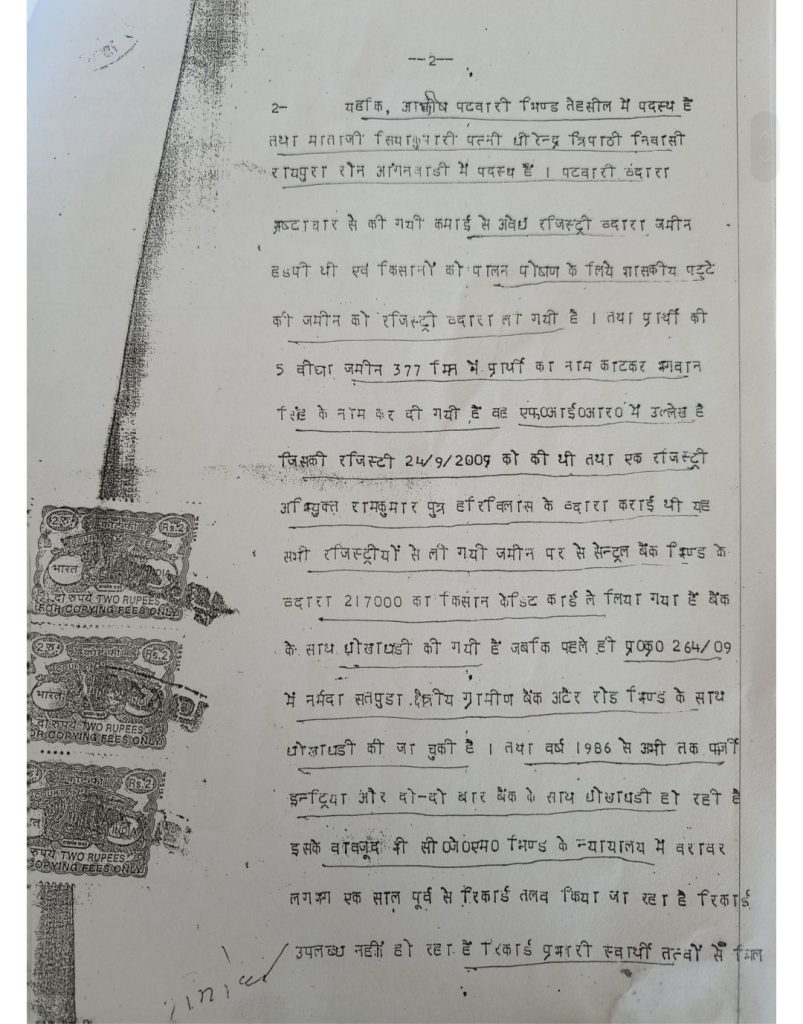 --2--
2- यहकि, आशीष पटवारी भिण्ड तेहसील में पदस्थ है
तथा माताजी सियाकुमारी पत्नी धीरेन्द्र त्रिपाठी निवासी
रायपुरा रोन आंगनवाडी में पदस्थ है । पटवारी व्दारा
भ्रष्टाचार से की गयी कमाई से अवैध रजिस्ट्री व्दारा जमीन
हडपी थी एवं किसानों को पालन पोषण के लिये शासकीय पट्टे
की जमीन को रजिस्ट्री व्दारा ली गयी है । तथा प्रार्थी की
5 वीघा जमीन 377 मिन में प्रार्थी का नाम काटकर भगवान
सिंह के नाम कर दी गयी है वह एफ0आई0आर0 में उल्लेख है
जिसकी रजिस्टी 24/9/2009 को की थी तथा एक रजिस्ट्री
अभियुक्त रामकुमार पुत्र हरिविलास के व्दारा कराई थी यह
सभी रजिस्ट्रीयों से ली गयी जमीन पर से सेन्ट्रल बैंक भिण्ड के
व्दारा 217000 का किसान केडिट कार्ड ले लिया गया है बैंक
के साथ धोखाधडी की गयी है जबकि पहले ही प्र0क्र0 264/09
में नर्मदा सतपुडा क्षेत्रीय ग्रामीण बैंक अटेर रोड भिण्ड के साथ
धोखाधडी की जा चुकी है । तथा वर्ष 1986 से अभी तक फर्जी
इन्द्रिया और दो-दो बार बैंक के साथ धोखाधडी हो रही है
इसके वावजूद भी सी0जे0एम0 भिण्ड के न्यायालय में वरावर
लगभग एक साल पूर्व से रिकार्ड तलव किया जा रहा है रिकार्ड
उपलब्ध नहीं हो रहा है रिकार्ड प्रभारी स्वार्थी तत्वों से मिल
2 रु. Rs.2
भारत INDIA
दो रुपये TWO RUPEES
FOR COPYING FEES ONLY
2 रु. Rs.2
भारत
दो रुपये TWO RUPEES
FOR COPYING FEES ONLY
Rs.2
INDIA
रुपये TWO RUPEES
COPYING FEES ONLY